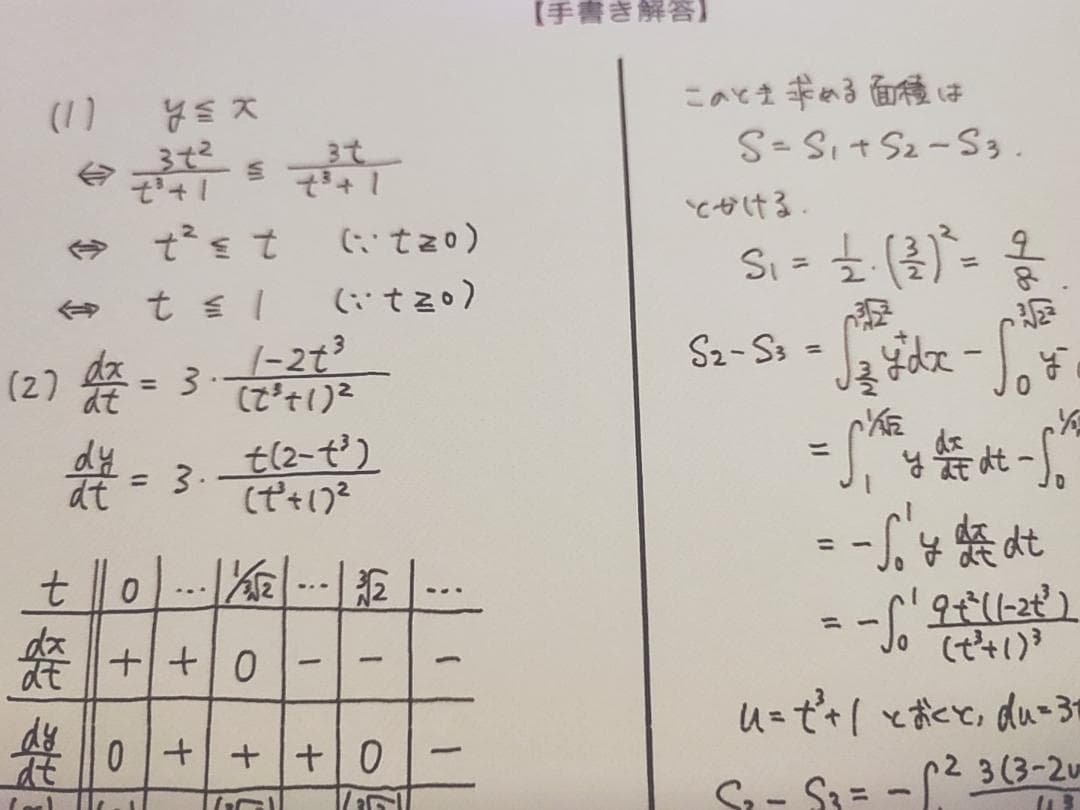 【手書き解答】
(1) y≦x
⇔ 3t²/(t³+1) ≦ 3t/(t³+1)
⇔ t² ≦ t (∵ t≧0)
⇔ t ≦ 1 (∵ t≧0)
(2) dx/dt = 3・(1-2t³)/(t³+1)²
dy/dt = 3・t(2-t³)/(t³+1)²
t 0 … 1/³√2 … ³√2 …
dx/dt + + 0 - - -
dy/dt 0 + + + 0 -
このとき求める面積は
S = S₁ + S₂ - S₃.
とかける.
S₁ = 1/2・(3/2)² = 9/8.
S₂ - S₃ = ∫_{3/2}^{³√2²} y⁺dx - ∫_0^{³√2²} y⁻
= ∫_1^{1/³√2} y dx/dt dt - ∫_0
= -∫_0^1 y dx/dt dt
= -∫_0^1 9t²(1-2t³)/(t³+1)³
u = t³+1 とおくと, du = 3t
S₂ - S₃ = -∫^2 3(3-2u